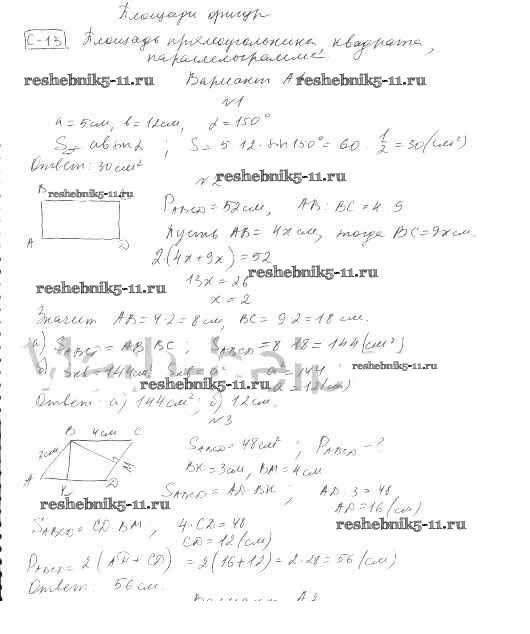 Площади фигур
С-13 Площадь прямоугольника, квадрата,
параллелограмма
reshebnik5-11.ru Вариант А1 reshebnik5-11.ru
№1
a = 5см, b = 12см, α = 150°
S = ab sin α ; S = 5·12·sin150° = 60·1/2 = 30(см²)
Ответ: 30см²
№2 reshebnik5-11.ru
B reshebnik5-11.ru
P ABCD = 52см, AB:BC = 4:9
A D
Пусть AB = 4x см, тогда BC = 9x см.
2·(4x + 9x) = 52
reshebnik5-11.ru
13x = 26
reshebnik5-11.ru
x = 2
Значит AB = 4·2 = 8см, BC = 9·2 = 18см.
а) S ABCD = AB·BC ; S ABCD = 8·18 = 144(см²)
б) Sкв = 144см² Sкв = a² a² = 144 reshebnik5-11.ru
reshebnik5-11.ru a = 12(см)
Ответ: а) 144см²; б) 12см.
№3
B 4см C
2см
S ABCD = 48см² ; P ABCD - ?
A K D
BK = 3см, BM = 4см
S ABCD = AD·BK ; AD·3 = 48
reshebnik5-11.ru
AD = 16(см)
S ABCD = CD·BM, 4·CD = 48 reshebnik5-11.ru
CD = 12(см)
P ABCD = 2(AD + CD) = 2(16+12) = 2·28 = 56(см)
Ответ: 56см.
Вариант А2